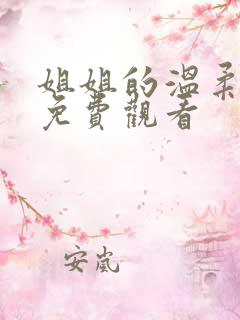 姐姐的溫柔
免費觀看
安嵐